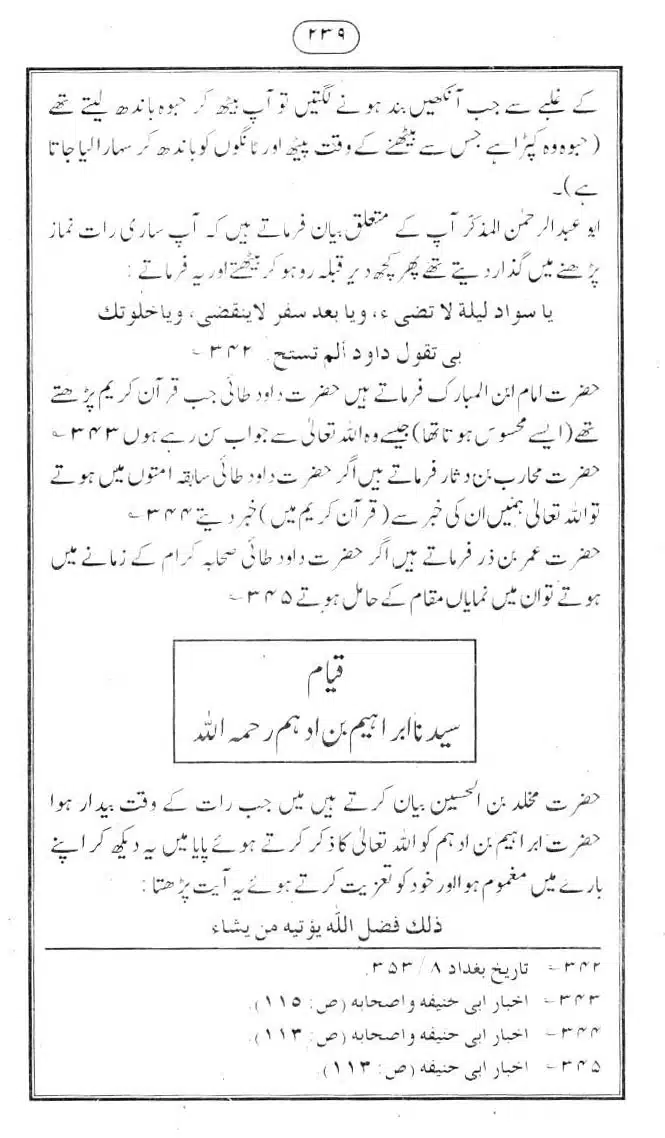 ۲۳۹
کے غلبے سے جب آنکھیں بند ہونے لگتیں تو آپ بیٹھ کر حبوہ باندھ لیتے تھے
(حبوہ وہ کپڑا ہے جس سے بیٹھنے کے وقت پیٹھ اور ٹانگوں کو باندھ کر سہارا لیا جاتا
ہے)۔
ابو عبدالرحمٰن المذکر آپ کے متعلق بیان فرماتے ہیں کہ آپ ساری رات نماز
پڑھنے میں گذار دیتے تھے پھر کچھ دیر قبلہ رو ہو کر بیٹھتے اور یہ فرماتے :
یا سواد لیلة لا تضیء، ویا بعد سفر لاینقضی، ویاخلوتك
بی تقول داود ألم تستح. ۳۴۲؎
حضرت امام ابن المبارک فرماتے ہیں حضرت داود طائی جب قرآن کریم پڑھتے
تھے (ایسے محسوس ہوتا تھا) جیسے وہ اللہ تعالیٰ سے جواب سن رہے ہوں ۳۴۳؎
حضرت محارب بن دثار فرماتے ہیں اگر حضرت داود طائی سابقہ امتوں میں ہوتے
تو اللہ تعالیٰ ہمیں ان کی خبر سے (قرآن کریم میں) خبر دیتے ۳۴۴؎
حضرت عمر بن ذر فرماتے ہیں اگر حضرت داود طائی صحابہ کرام کے زمانے میں
ہوتے تو ان میں نمایاں مقام کے حامل ہوتے ۳۴۵؎
قیام
سیدنا ابراہیم بن ادہم رحمہ اللہ
حضرت مخلد بن الحسین بیان کرتے ہیں میں جب رات کے وقت بیدار ہوا
حضرت ابراہیم بن ادہم کو اللہ تعالیٰ کا ذکر کرتے ہوئے پایا میں یہ دیکھ کر اپنے
بارے میں مغموم ہوا اور خود کو تعزیت کرتے ہوئے یہ آیت پڑھتا :
ذلك فضل الله یؤتیه من یشاء
۳۴۲؎ تاریخ بغداد ۸/۳۵۳.
۳۴۳؎ اخبار ابی حنیفه واصحابه (ص: ۱۱۵).
۳۴۴؎ اخبار ابی حنیفه واصحابه (ص: ۱۱۳).
۳۴۵؎ اخبار ابی حنیفه (ص: ۱۱۳).